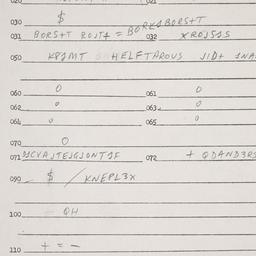 030 $
031 BORS+T ROJT4 = BORK4BORS+T 032 XROJ5JS
050 KPJMT HELFTAROUS JID+
060 0 061 0
062 0 063 0
064 0 065 0
070 0
071 072 + QDAND3RS
090 $ / KNEPL3X
100 QH
110 + = -